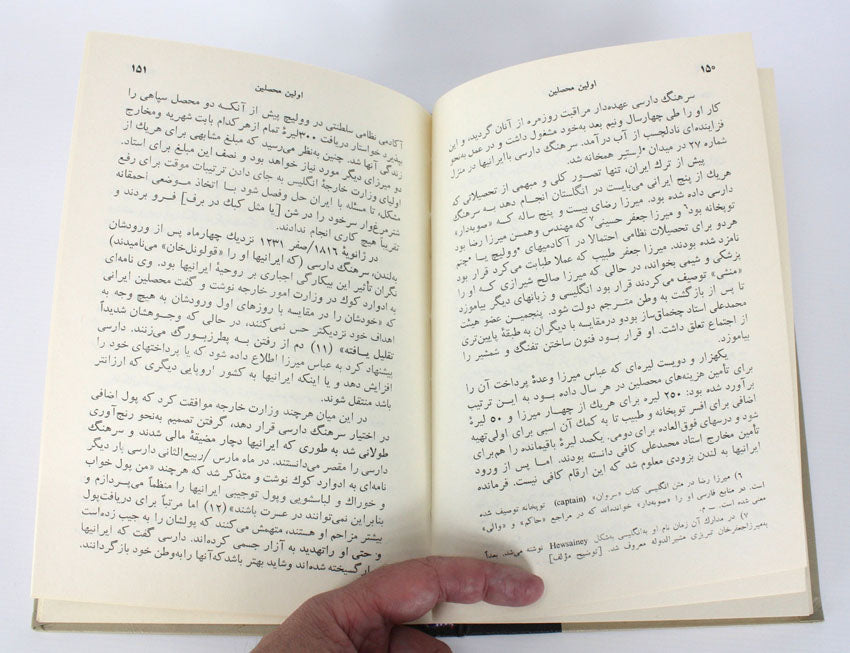 ۱۵۰
اولین محصلین
سرهنگ دارسی عهده‌دار مراقبت روزمره از آنان گردید، و این
کار او را طی چهارسال ونیم بعد به‌خود مشغول داشت و در عمل به‌نحو
فزاینده‌ای نادلچسب از آب درآمد. سرهنگ دارسی باایرانیها در منزل
شماره ۲۷ در میدان °لستیر همخانه شد.
پیش از ترك ایران، تنها تصور کلی و مبهمی از تحصیلاتی که
هریك از پنج ایرانی می‌بایست در انگلستان انجام دهد به سرهنگ
دارسی داده شده بود. میرزا رضای بیست و پنج ساله کـه «صوبه‌دار»
توپخانه بود۶ و میرزا جعفر حسینی۷ که مهندس وهمسن میرزا رضا بود
هردو برای تحصیلات نظامی احتمالا در آکادمیهای °وولیچ یـا °چتم
نامزد شده بودند. میرزا جعفر طبیب که عملا طبابت می‌کرد قرار بود
پزشکی و شیمی بخواند، در حالی که میرزا صالح شیرازی کـه او را
«منشی» توصیف می‌کردند قرار بود انگلیسی و زبانهای دیگر بیاموزد
تا پس از بازگشت به وطن مترجم دولت شود. پنجمیـن عضو هیئت
محمدعلی استاد چخماق‌ساز بودو درمقایسه با دیگران به طبقهٔ پایین‌تری
از اجتماع تعلق داشت. او قرار بـود فنون ساختن تفنگ و شمشیر را
بیاموزد.
یکهزار و دویست لیره‌ای که عباس میرزا وعدهٔ پرداخت آن را
برای تأمین هزینه‌های محصلین در هر سال داده بـود به ایـن ترتیب
برآورد شده بود: ۲۵۰ لیره برای هریك از چهـار میرزا و ۵۰ لیرهٔ
اضافی برای افسر توپخانه و طبیب تا به کمك آن اسبی برای اولی‌تهیه
شود و درسهای فوق‌العاده برای دومی. یکصد لیرهٔ باقیمانده را هم‌برای
تأمین مخارج استاد محمدعلی کافی دانسته بودند. امـا پس از ورود
ایرانیها به لندن بزودی معلوم شد که این ارقام کافی نیست. فرمانده
۶) میرزا رضا در متن انگلیسی کتاب «سروان» (captain) توپخانه توصیف شده
است. در منابع فارسی او را «صوبه‌دار» خوانده‌اند که در مراجع «حاکم» و «والی»
معنی شده است. ــ م.
۷) در مدارك آن زمان نام او به‌انگلیسی به‌شکل Hewsainey نوشته می‌شد. بعداً
به‌میرزاجعفرخان تبریزی مشیرالدوله معروف شد. [توضیح مؤلف]
۱۵۱
اولین محصلین
آکادمی نظامی سلطنتی در وولیچ پیش از آنکـه دو محصل سپاهی را
بپذیرد خواستار دریافت ۳۰۰لیرهٔ تمام ازهر کدام بابت شهریه ومخارج
زندگی آنها شد. چنین به‌نظر می‌رسید که مبلغ مشابهی برای هریك از
دو میرزای دیگر مورد نیاز خواهد بود و نصف این مبلغ برای استاد.
اولیای وزارت خارجهٔ انگلیس به جای دادن ترتیبات موقت برای رفع
مشکل، تا مسئله با ایران حل وفصل شود بـا اتخاذ مـوضعی احمقانه
شترمرغ‌وار سرخود را در شن [یا مثل کبك در برف] فـرو بردند و
تقریباً هیچ کاری انجام ندادند.
در ژانویهٔ ۱۸۱۶/صفر ۱۲۳۱ نزدیك چهارماه پس از ورودشان
به‌لندن، سرهنگ دارسی (که ایرانیها او را «قولونل‌خان» می‌نامیدند)
نگران تأثیر این بیکارگی اجباری بر روحیهٔ ایرانیها بود. وی نامه‌ای
به ادوارد کوك در وزارت امور خارجه نوشت و گفت محصلین ایرانی
که «خودشان را در مقایسه با روزهای اول ورودشان به هیچ وجه به
اهداف خود نزدیکتر حس نمی‌کنند، در حالی که وجـوهشان شدیداً
تقلیل یـافته» (۱۱) دم از رفتن بـه پطرزبـورگ می‌زنند. دارسی
پیشنهاد کرد به عباس میرزا اطلاع داده شود که یا پرداختهای خود را
افزایش دهد و یا اینکه ایرانیها به کشور اروپایی دیگری که ارزانتر
باشد منتقل شوند.
در این میان هرچند وزارت خارجه موافقت کرد که پول اضافی
در اختیار سرهنگ دارسی قرار دهد، گرفتن تصمیم به‌نحو رنج‌آوری
طولانی شد به طوری که ایرانیها دچار مضیقهٔ مالی شدند و سرهنگ
دارسی را مقصر می‌دانستند. در ماه مارس /ربیع‌الثانی دارسی بار دیگر
نامه‌ای به ادوارد کوك نوشت و متذکر شد که هرچند «من پول خواب
و خوراك و لباسشویی وپول توجیبی ایرانیها را منظماً می‌پردازم و
بنابراین نمی‌توانند در عسرت باشند» (۱۲) اما مرتباً برای دریافت‌پول
بیشتر مزاحم او هستند، متهمش می‌کنند که پولشان را به جیب زده‌است
و حتی او راتهدید به آزار جسمی کرده‌اند. دارسی گفت که ایرانیها
گسیخته شده‌اند وشاید بهتر باشدکه‌آنها رابه‌وطن خود بازگردانند.